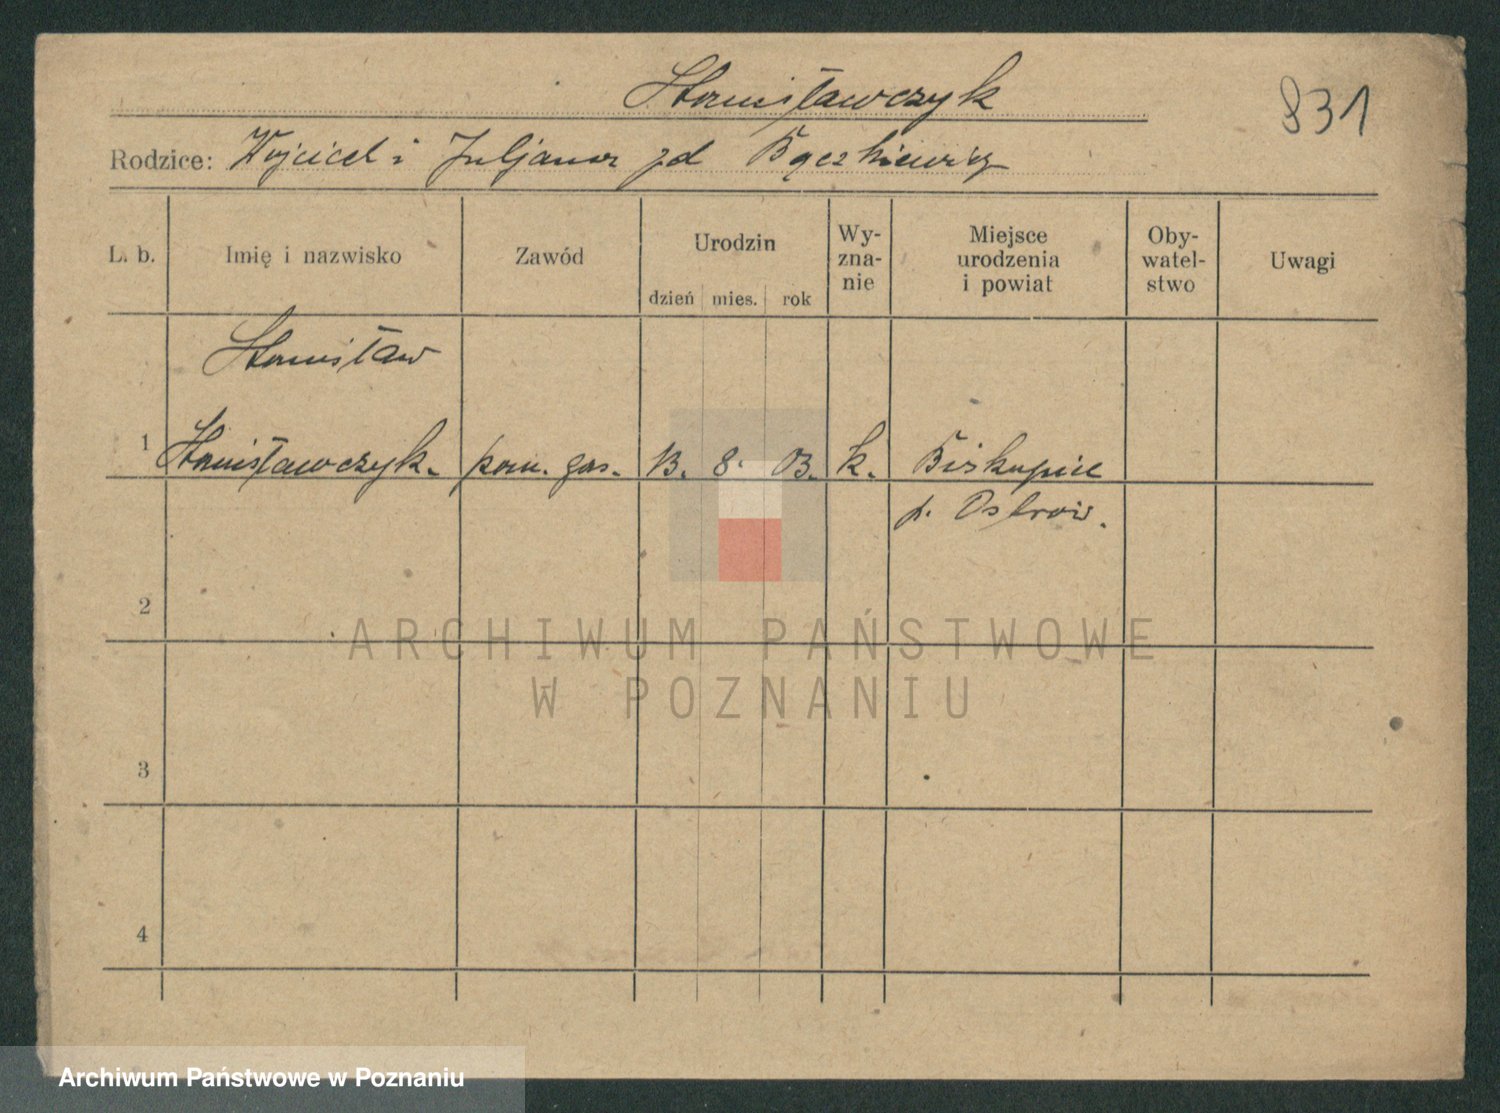 Stanisławczyk
831
Rodzice: Wojciech i Juljanna zd Bączkiewicz
L. b. Imię i nazwisko Zawód Urodzin dzień mies. rok Wy-zna-nie Miejsce urodzenia i powiat Oby-watel-stwo Uwagi
Stanisław
1 Stanisławczyk. pom. gas. 13. 8. 03. k. Biskupice
p. Ostrów.
2
ARCHIWUM PAŃSTWOWE
W POZNANIU
3
4
Archiwum Państwowe w Poznaniu